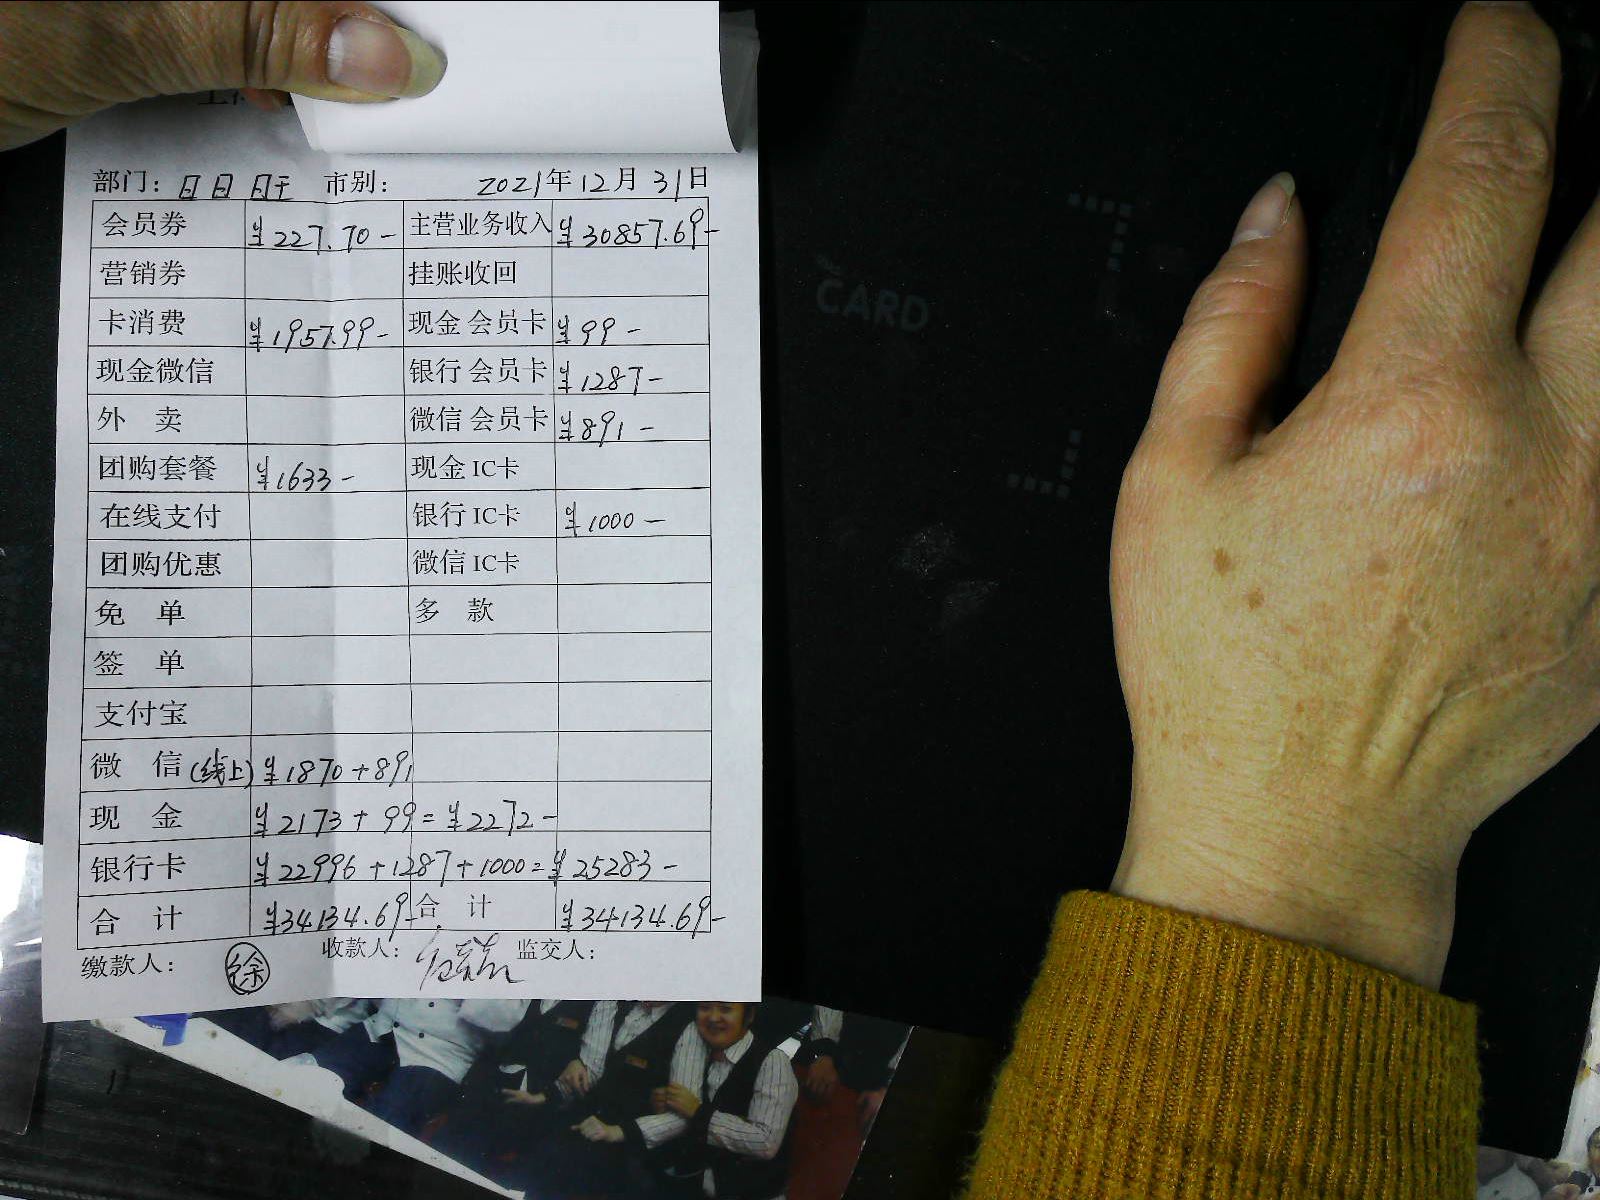 部门：日日旺 市别： 2021年12月31日
会员券 ¥227.70- 主营业务收入 ¥30857.69-
营销券 挂账收回
卡消费 ¥1957.99- 现金 会员卡 ¥99-
现金微信 银行 会员卡 ¥1287-
外 卖 微信 会员卡 ¥891-
团购套餐 ¥1633- 现金 IC卡
在线支付 银行 IC卡 ¥1000-
团购优惠 微信 IC卡
免 单 多 款
签 单
支付宝
微 信(线上) ¥1870+891
现 金 ¥2173+99=¥2272-
银行卡 ¥22996+1287+1000=¥25283-
合 计 ¥34134.69- 合 计 ¥34134.69-
缴款人： 徐 收款人： 监交人：
CARD